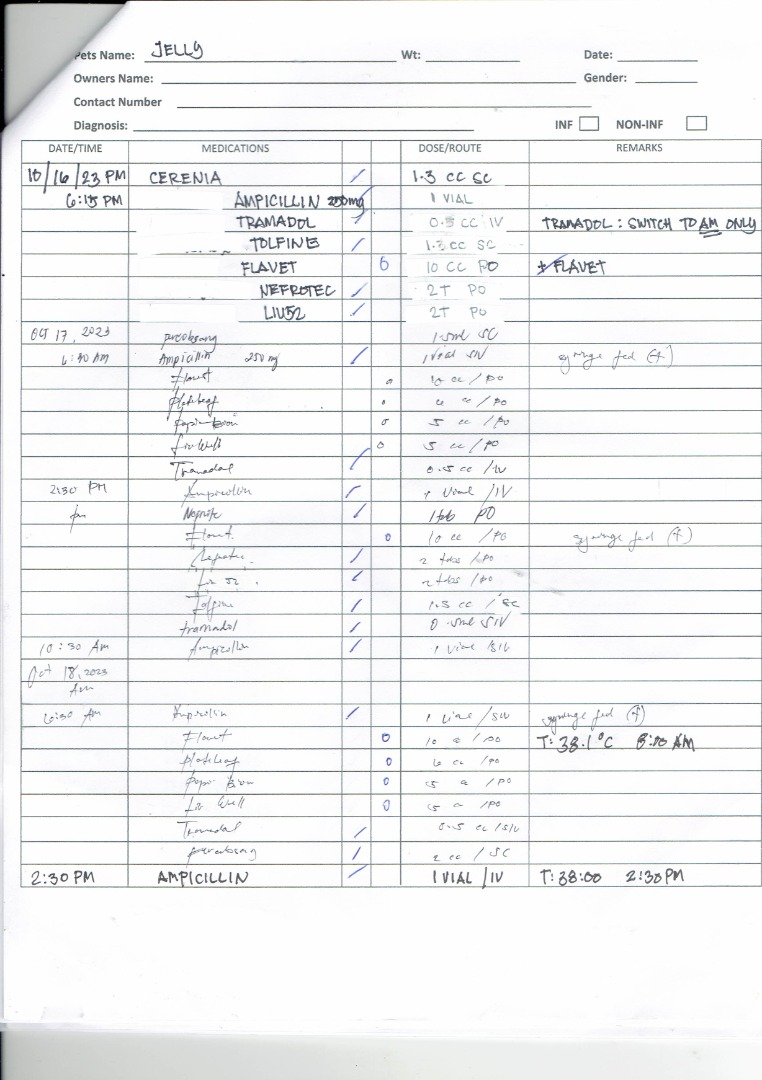 Pets Name: JELLY Wt: Date:
Owners Name: Gender:
Contact Number
Diagnosis: INF NON-INF
DATE/TIME MEDICATIONS DOSE/ROUTE REMARKS
10/16/23 PM CERENIA / 1.3 CC SC
6:15 PM AMPICILLIN 250mg / 1 VIAL
TRAMADOL / 0.5 CC IV TRAMADOL: SWITCH TO AM ONLY
TOLFINE / 1.3 CC SC
FLAVET 6 10 CC PO FLAVET
NEFROTEC / 2T PO
LIV52 / 2T PO
Oct 17, 2023 1.5ml SC
6:30 AM Ampicillin 250 mg / 1 vial SIV syringe fed (+)
o 10 cc / PO
o cc / PO
o 5 cc / PO
Liv Well o 5 cc / PO
Tramadol / 0.5 cc / IV
2:30 PM Ampicillin / 1 Vial / IV
/ 1 tab PO
o 10 cc / PO syringe fed (+)
/ 2 tabs / PO
Liv 52. / 2 tabs / PO
Tolfine / 1.3 cc / SC
tramadol / 0.5ml SIV
10:30 Am Ampicillin / 1 Vial SIV
Oct 18, 2023
Am
6:30 Am Ampicillin / 1 Vial / SIV syringe fed (+)
o 10 / PO T: 38.1°C 8:00 AM
o cc / PO
o 5 / PO
Liv Well o 5 / PO
Tramadol / 0.5 cc / SIV
/ 2 cc / SC
2:30 PM AMPICILLIN / 1 VIAL / IV T: 38:00 2:30 PM